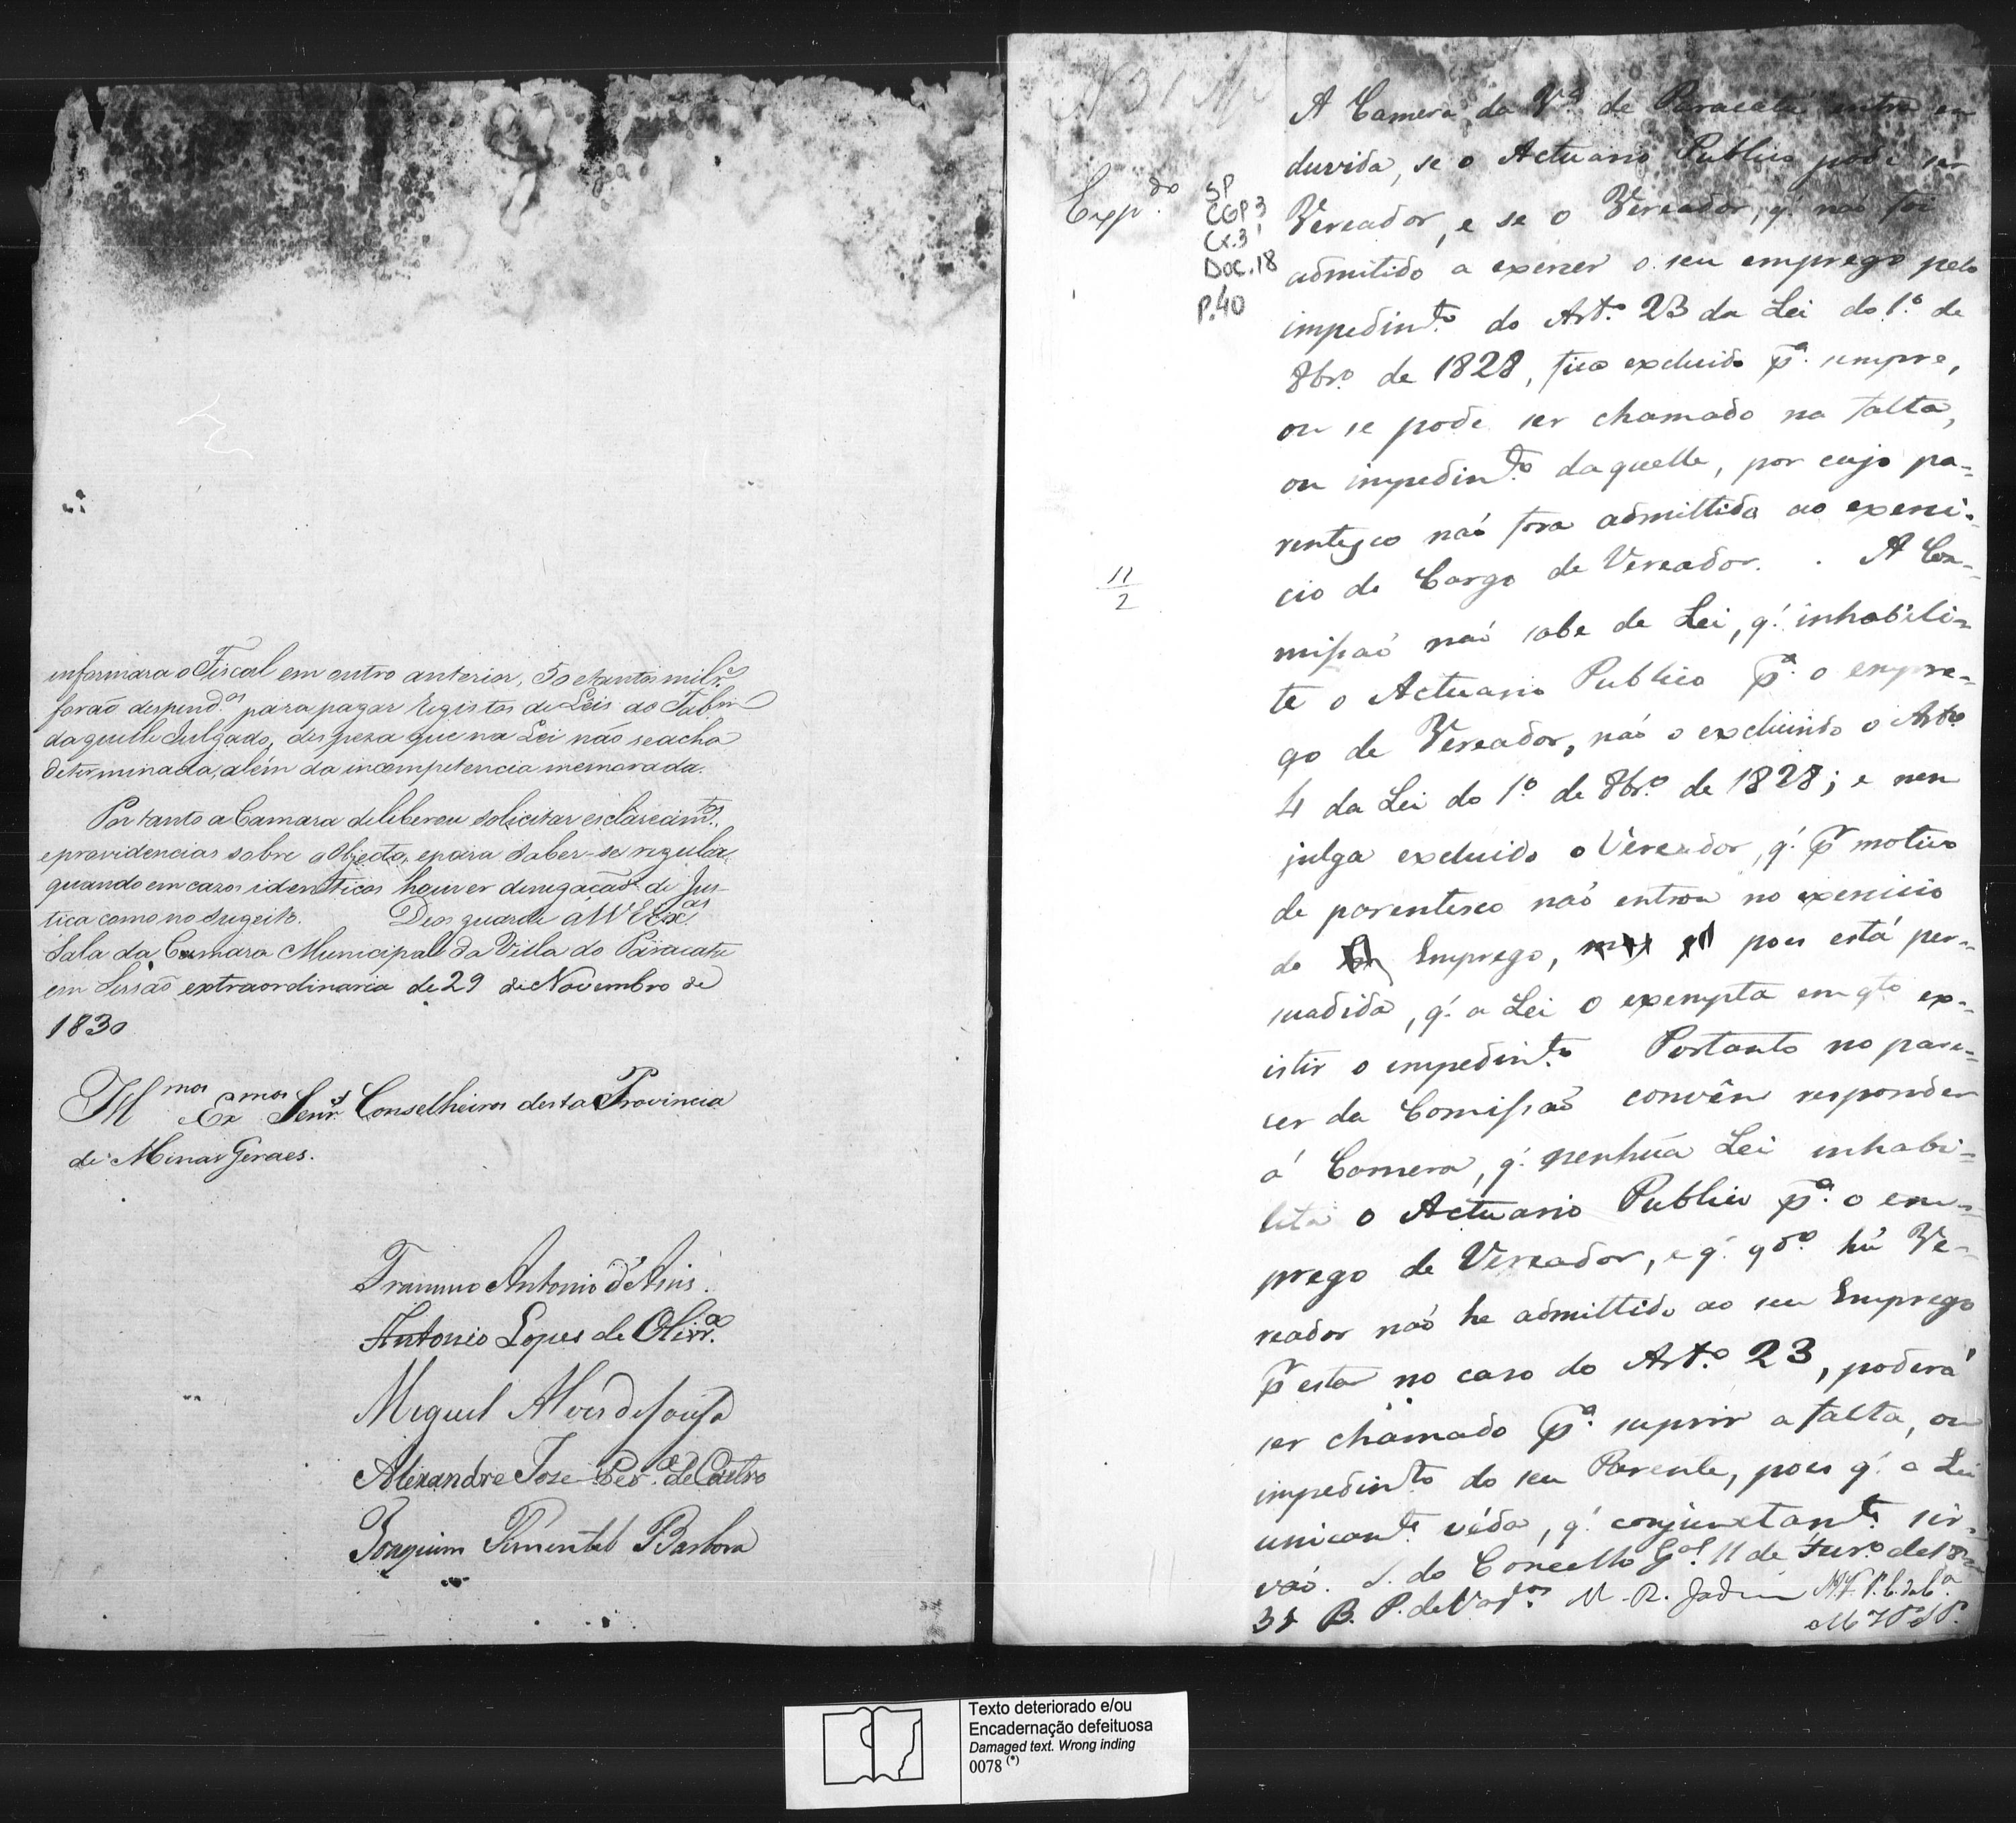 informara o Fiscal em outro anterior, 50 e tantos mil r.s
forão despend.os para pagar Registos de Leis ao Tab.am
daquelle Julgado, despeza que na Lei não se acha
determinada, alem da incompetencia memorada.
Portanto a Camara deliberou solicitar esclarecim.tos,
e providencias sobre o objecto, e para saber-se regular
quando em casos identicos houver denegação de Jus-
tica como no sugeito. Deos guarde a VV Ex.as
Sala da Camara Municipal da Villa do Paracatu
em Sessão extraordinaria de 29 de Novembro de
1830
Ill mos Ex mos Senr.s Conselheiros desta Provincia
de Minas Geraes.
Antonio d'Assis.
Antonio Lopes de Olivr.a
Miguel Alves de Sousa
Alexandre Jose Per.a de Castro
Joaquim Pimentel Barbosa
N 31
Exp.do
SP
CGP 3
Cx.3
Doc.18
P.40
11
2
A Camera da V.a de Paracatú entra em
duvida, se o Actuario Publico pode ser
Vereador, e se o Vereador, q' naó foi
admitido a exercer o seu emprego pelo
impedim.to do Art.o 23 da Lei do 1.o de
8br.o de 1828, fica excluido p.a sempre,
ou se pode ser chamado na falta,
ou impedim.to daquelle, por cujo pa-
rentesco naó fora admittido ao exerci-
cio do Cargo de Vereador. A Co-
missaó naó sabe de Lei, q' inhabili-
te o Actuario Publico p.a o empre-
go de Vereador, naó o excluindo o Art.o
4 da Lei do 1.o de 8br.o de 1828; e nem
julga excluido o Vereador, q' p.r motivo
de parentesco naó entrou no exercicio
do Emprego, pois está per-
suadida, q' a Lei o exempta emq.to ex-
istir o impedim.to Portanto no pare-
cer da Comissaó convêm responder
á Camera, q' nenhũa Lei inhabi-
lita o Actuario Publico p.a o em-
prego de Vereador, e q' q.do hũ Ve-
reador naó he admittido ao seu Emprego
p.r estar no caso do Art.o 23, poderá
ser chamado p.a suprir a falta, ou
impedim.to do seu Parente, pois q' a Lei
unicam.te véda, q' conjunctam.te sir-
vaó. S. do Concelho G.al 11 de Fevr.o de 18
31 B. P. de Vas.os M. R. Jardim